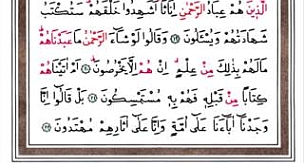 الَّذِينَ هُمْ عِبَادُ الرَّحْمٰنِ اِنَاثًا اَشَهِدُوا خَلْقَهُمْ سَتُكْتَبُ
شَهَادَتُهُمْ وَيُسْـَٔلُونَ ﴿١٩﴾ وَقَالُوا لَوْ شَٓاءَ الرَّحْمٰنُ مَا عَبَدْنَاهُمْ
مَا لَهُمْ بِذٰلِكَ مِنْ عِلْمٍ اِنْ هُمْ اِلَّا يَخْرُصُونَ ﴿٢٠﴾ اَمْ اٰتَيْنَاهُمْ
كِتَابًا مِنْ قَبْلِهٖ فَهُمْ بِهٖ مُسْتَمْسِكُونَ ﴿٢١﴾ بَلْ قَالُٓوا اِنَّا
وَجَدْنَٓا اٰبَٓاءَنَا عَلٰٓى اُمَّةٍ وَاِنَّا عَلٰٓى اٰثَارِهِمْ مُهْتَدُونَ ﴿٢٢﴾